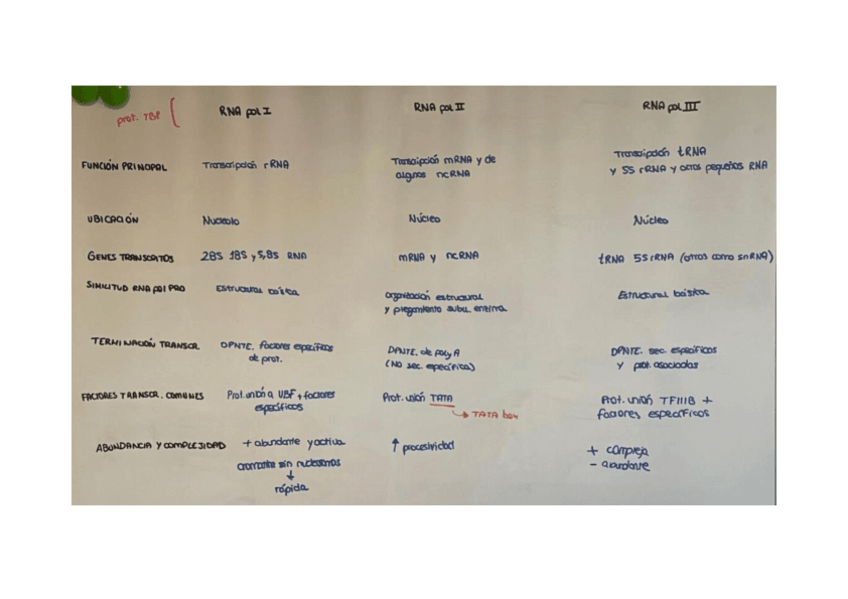 prot. TBP
RNA pol I
RNA pol II
RNA pol III
FUNCIÓN PRINCIPAL
Transcripción rRNA
Transcripción mRNA y de
algunos ncRNA
Transcripción tRNA
y 5S rRNA y otros pequeños RNA
UBICACIÓN
Nucleolo
Núcleo
Núcleo
GENES TRANSCRITOS
28S 18S y 5,8S RNA
mRNA y ncRNA
tRNA 5S rRNA (otros como snRNA)
SIMILITUD RNA pol PRO
Estructural básica
organización estructural
y plegamiento subu. enzima
Estructural básica
TERMINACIÓN TRANSCR.
DPNTE. factores específicos
de prot.
DPNTE. de poly A
(NO sec. específica)
DPNTE. sec. específicos
y prot. asociadas
FACTORES TRANSCR. COMUNES
Prot. unión a UBF + factores
específicos
Prot. unión TATA
TATA box
Prot. unión TFIIIB +
factores específicos
ABUNDANCIA Y COMPLEJIDAD
+ abundante y activa
cromatina sin nucleosomas
↓
rápida
↑ procesividad
+ compleja
- abundante